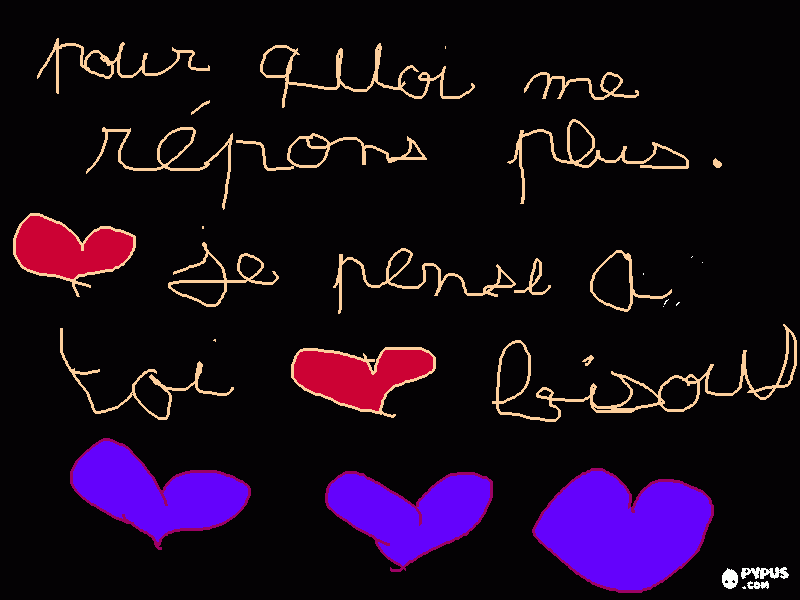 pour quoi me
répons plus.
je pense a
toi bisou
PYPUS
.COM